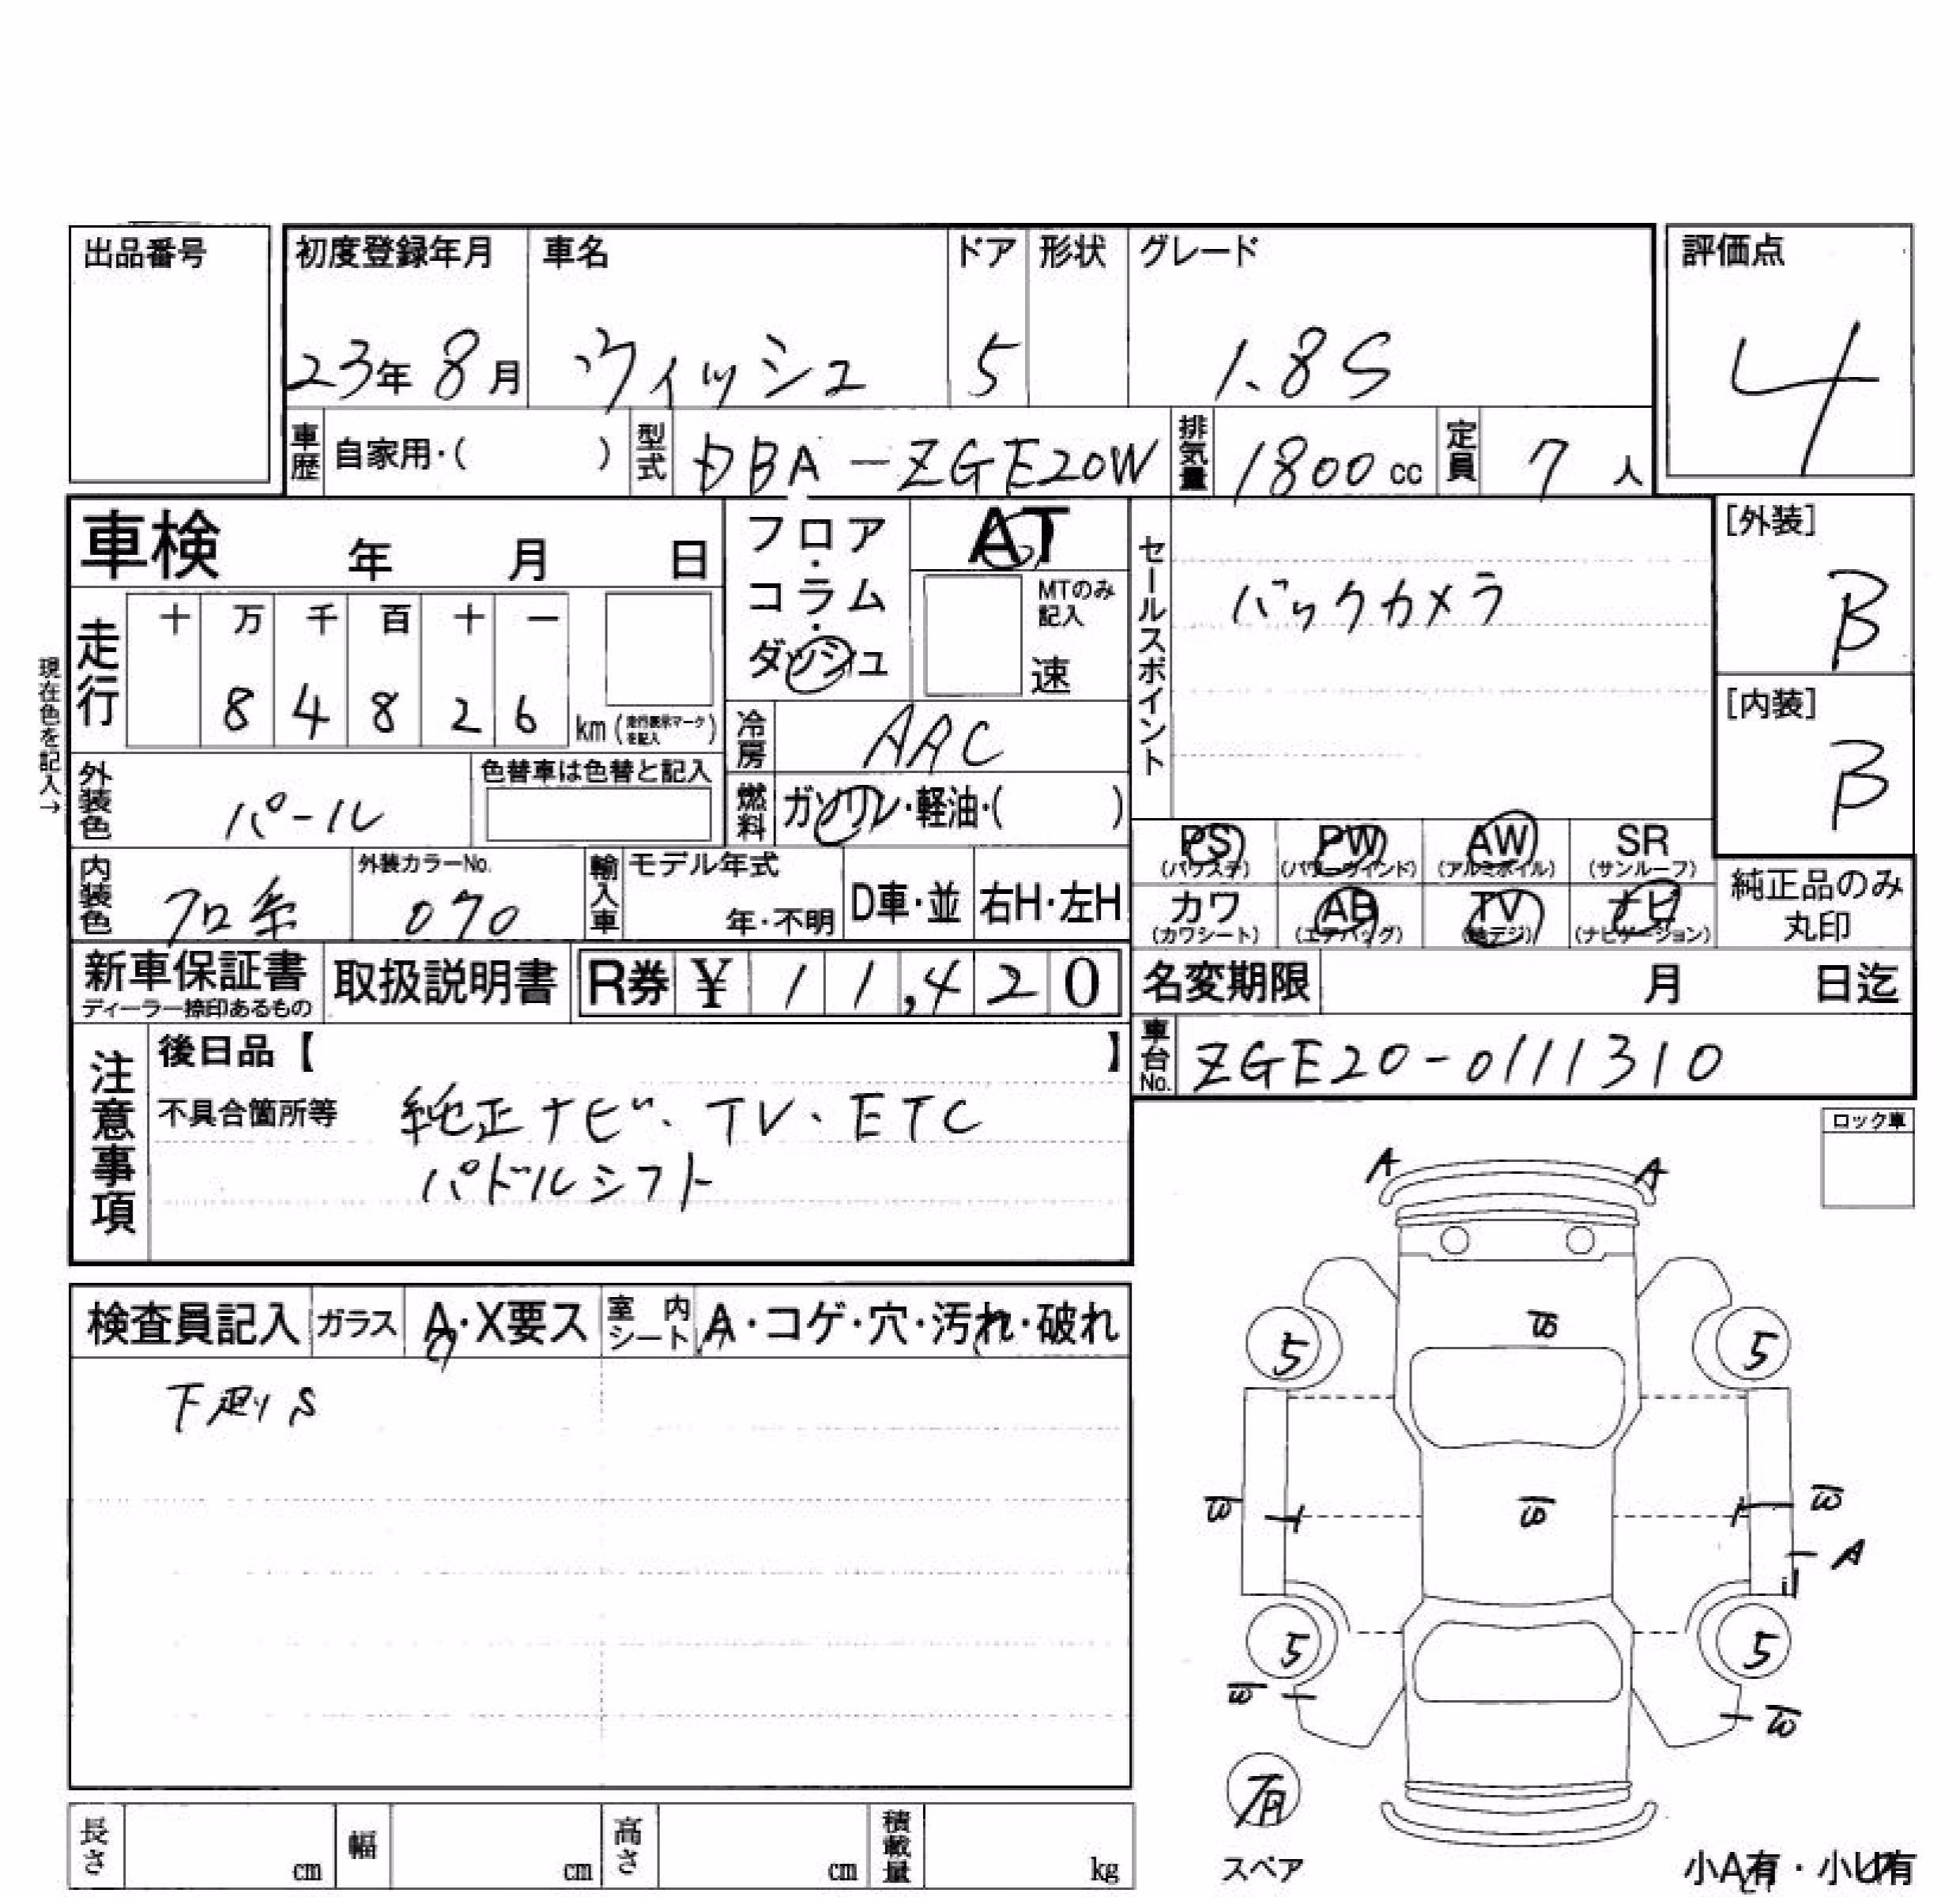 出品番号
初度登録年月 車名 ドア 形状 グレード 評価点
23年 8月 ウィッシュ 5 1.8S 4
車歴 自家用・( ) 型式 DBA-ZGE20W 排気量 1800cc 定員 7人
車検 年 月 日
フロア・コラム・ダッシュ
AT
MTのみ記入
速
セールスポイント
バックカメラ
[外装]
B
[内装]
B
現在色を記入→
走行 十 万 千 百 十 一
8 4 8 2 6 km(走行表示マークを記入)
冷房 AAC
外装色 パール
色替車は色替と記入
燃料 ガソリン・軽油・( )
PS PW AW SR
(パワステ) (パワーウインド) (アルミホイル) (サンルーフ)
カワ AB TV ナビ
(カワシート) (エアバッグ) (地デジ) (ナビゲーション)
純正品のみ
丸印
内装色 クロ系
外装カラーNo.
070
輸入車 モデル年式
年・不明
D車・並 右H・左H
新車保証書
ディーラー捺印あるもの
取扱説明書
R券 ¥ 1 1,4 2 0
名変期限 月 日迄
車台No. ZGE20-0111310
注意事項
後日品【 】
不具合箇所等 純正ナビ、TV、ETC
パドルシフト
ロック車
検査員記入 ガラス A・X要ス 室内シート A・コゲ・穴・汚れ・破れ
下廻りS
A A
5 5
W W
A
5 5
W W
有
スペア
小A有・小U有
長さ cm 幅 cm 高さ cm 積載量 kg